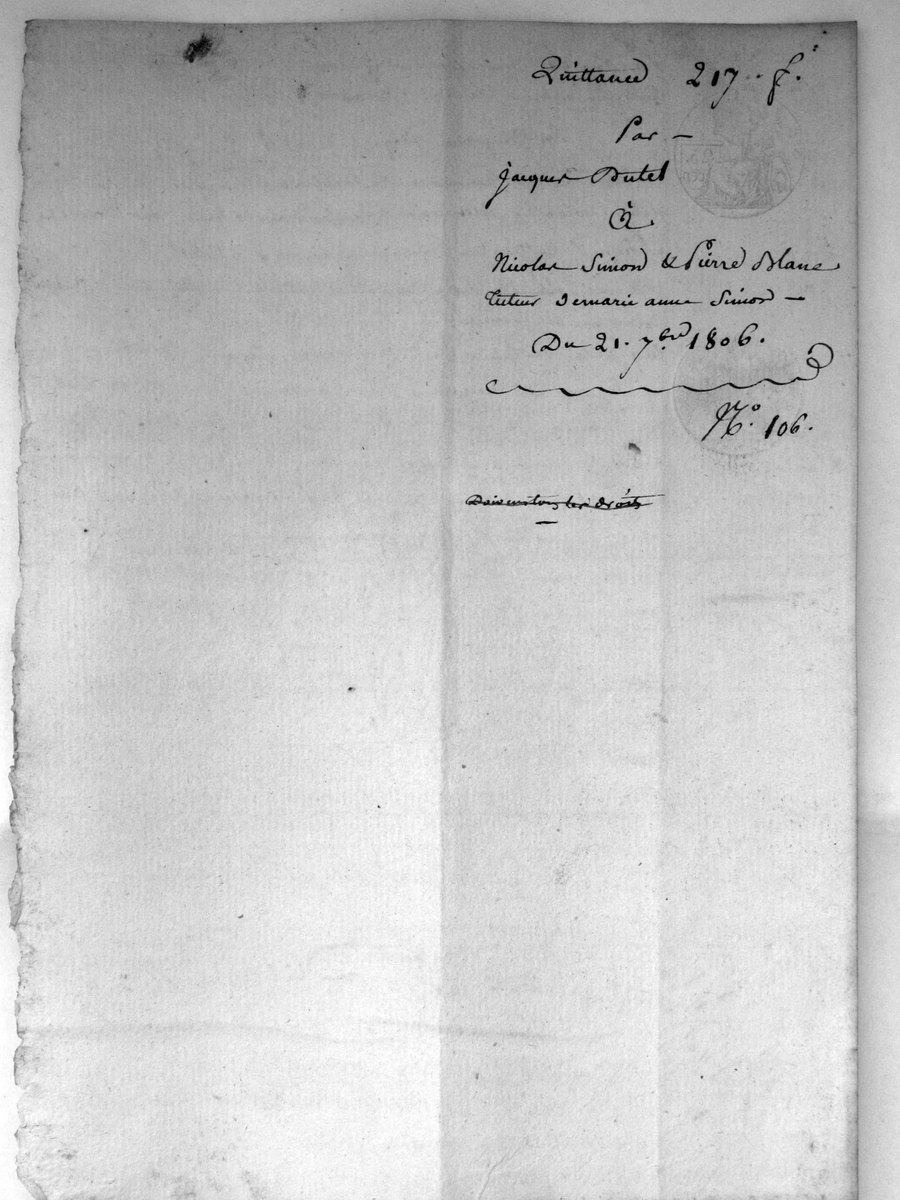 Quittance 217.. f.
Par —
jacques Dutel
à
Nicolas Simon & Pierre Blanc
tuteur de marie anne Simon —
Du 21. 7bre 1806.
No. 106.
Doivent tous les droits